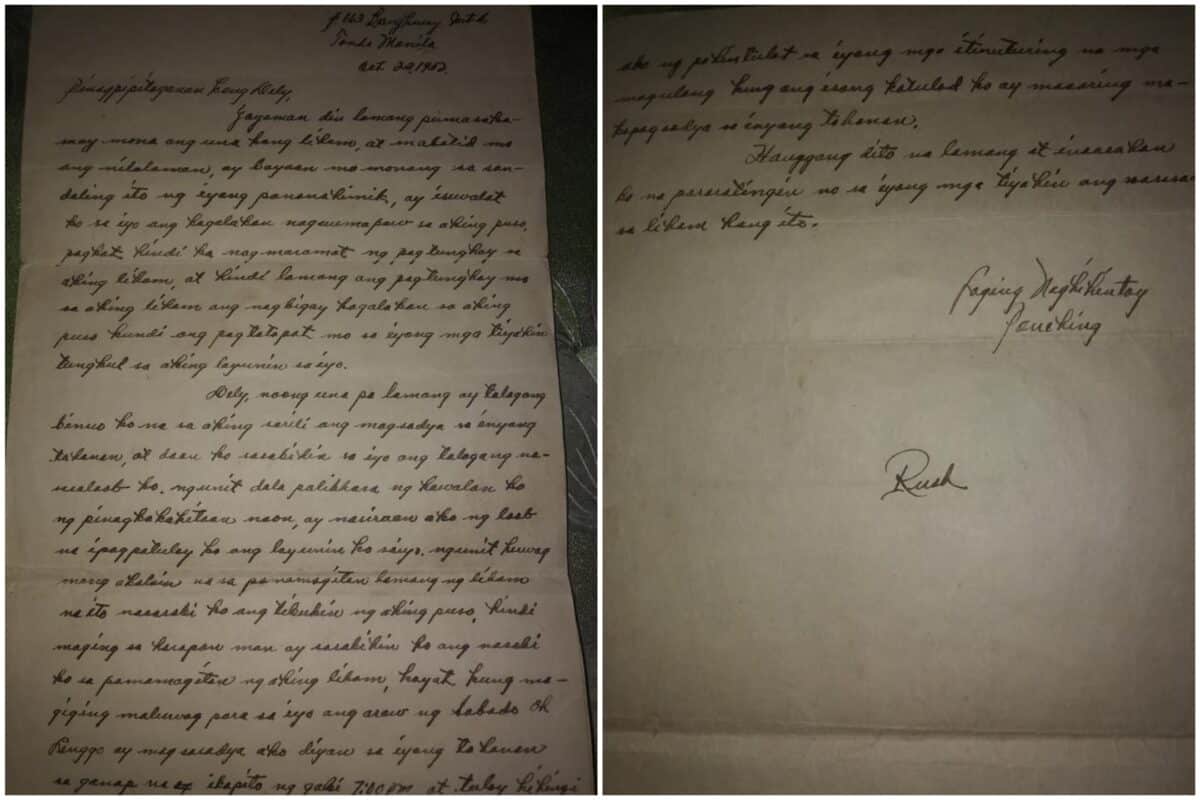 Tondo Manila
Oct. 22, 1952
Pinagpipitaganan kong Dely,
Yayaman din lamang pumasaka-
may mona ang una kong liham, at mabatid mo
ang nilalaman, ay bayaan mo monang sa san-
daling ito ng iyong pananahimik, ay isuwalat
ko sa iyo ang kagalakan naguumapaw sa aking puso,
pagkat hindi ka nagmaramot ng pagtunghay sa
aking liham, at hindi lamang ang pagtunghay mo
sa aking liham ang nagbigay kagalakan sa aking
puso kundi ang pagtatapat mo sa iyong mga tiyahin
tungkul sa aking layunin sa iyo.
Dely, noong una pa lamang ay talagang
binuo ko na sa aking sarili ang magsadya sa inyong
tahanan, at doon ko sasabihin sa iyo ang talagang na-
saloob ko, ngunit dala palibhasa ng kawalan ko
ng pinagkakakitaan noon, ay nasiraan ako ng loob
na ipagpatuloy ko ang layunin ko saiyo. ngunit huwag
mong akalain na sa pamamagitan lamang ng liham
na ito nasasabi ko ang tibukin ng aking puso, hindi
maging sa harapan man ay sasabihin ko ang nasabi
ko sa pamamagitan ng aking liham, kayat kung ma-
giging maluwag para sa iyo ang araw ng Sabado Oh
Linggo ay magsasadya ako diyan sa iyong tahanan
sa ganap na ika pito ng gabi 7:00 P.M at tuloy hihingi
ako ng pahintulot sa iyong mga itinuturing na mga
magulang kung ang isang katulad ko ay maaaring ma-
kapagsadya sa inyong tahanan.
Hanggang dito na lamang at inaasahan
ko na pararatingin mo sa iyong mga tiyahin ang nasasa-
sa liham kong ito.
Laging Naghihintay
Rush